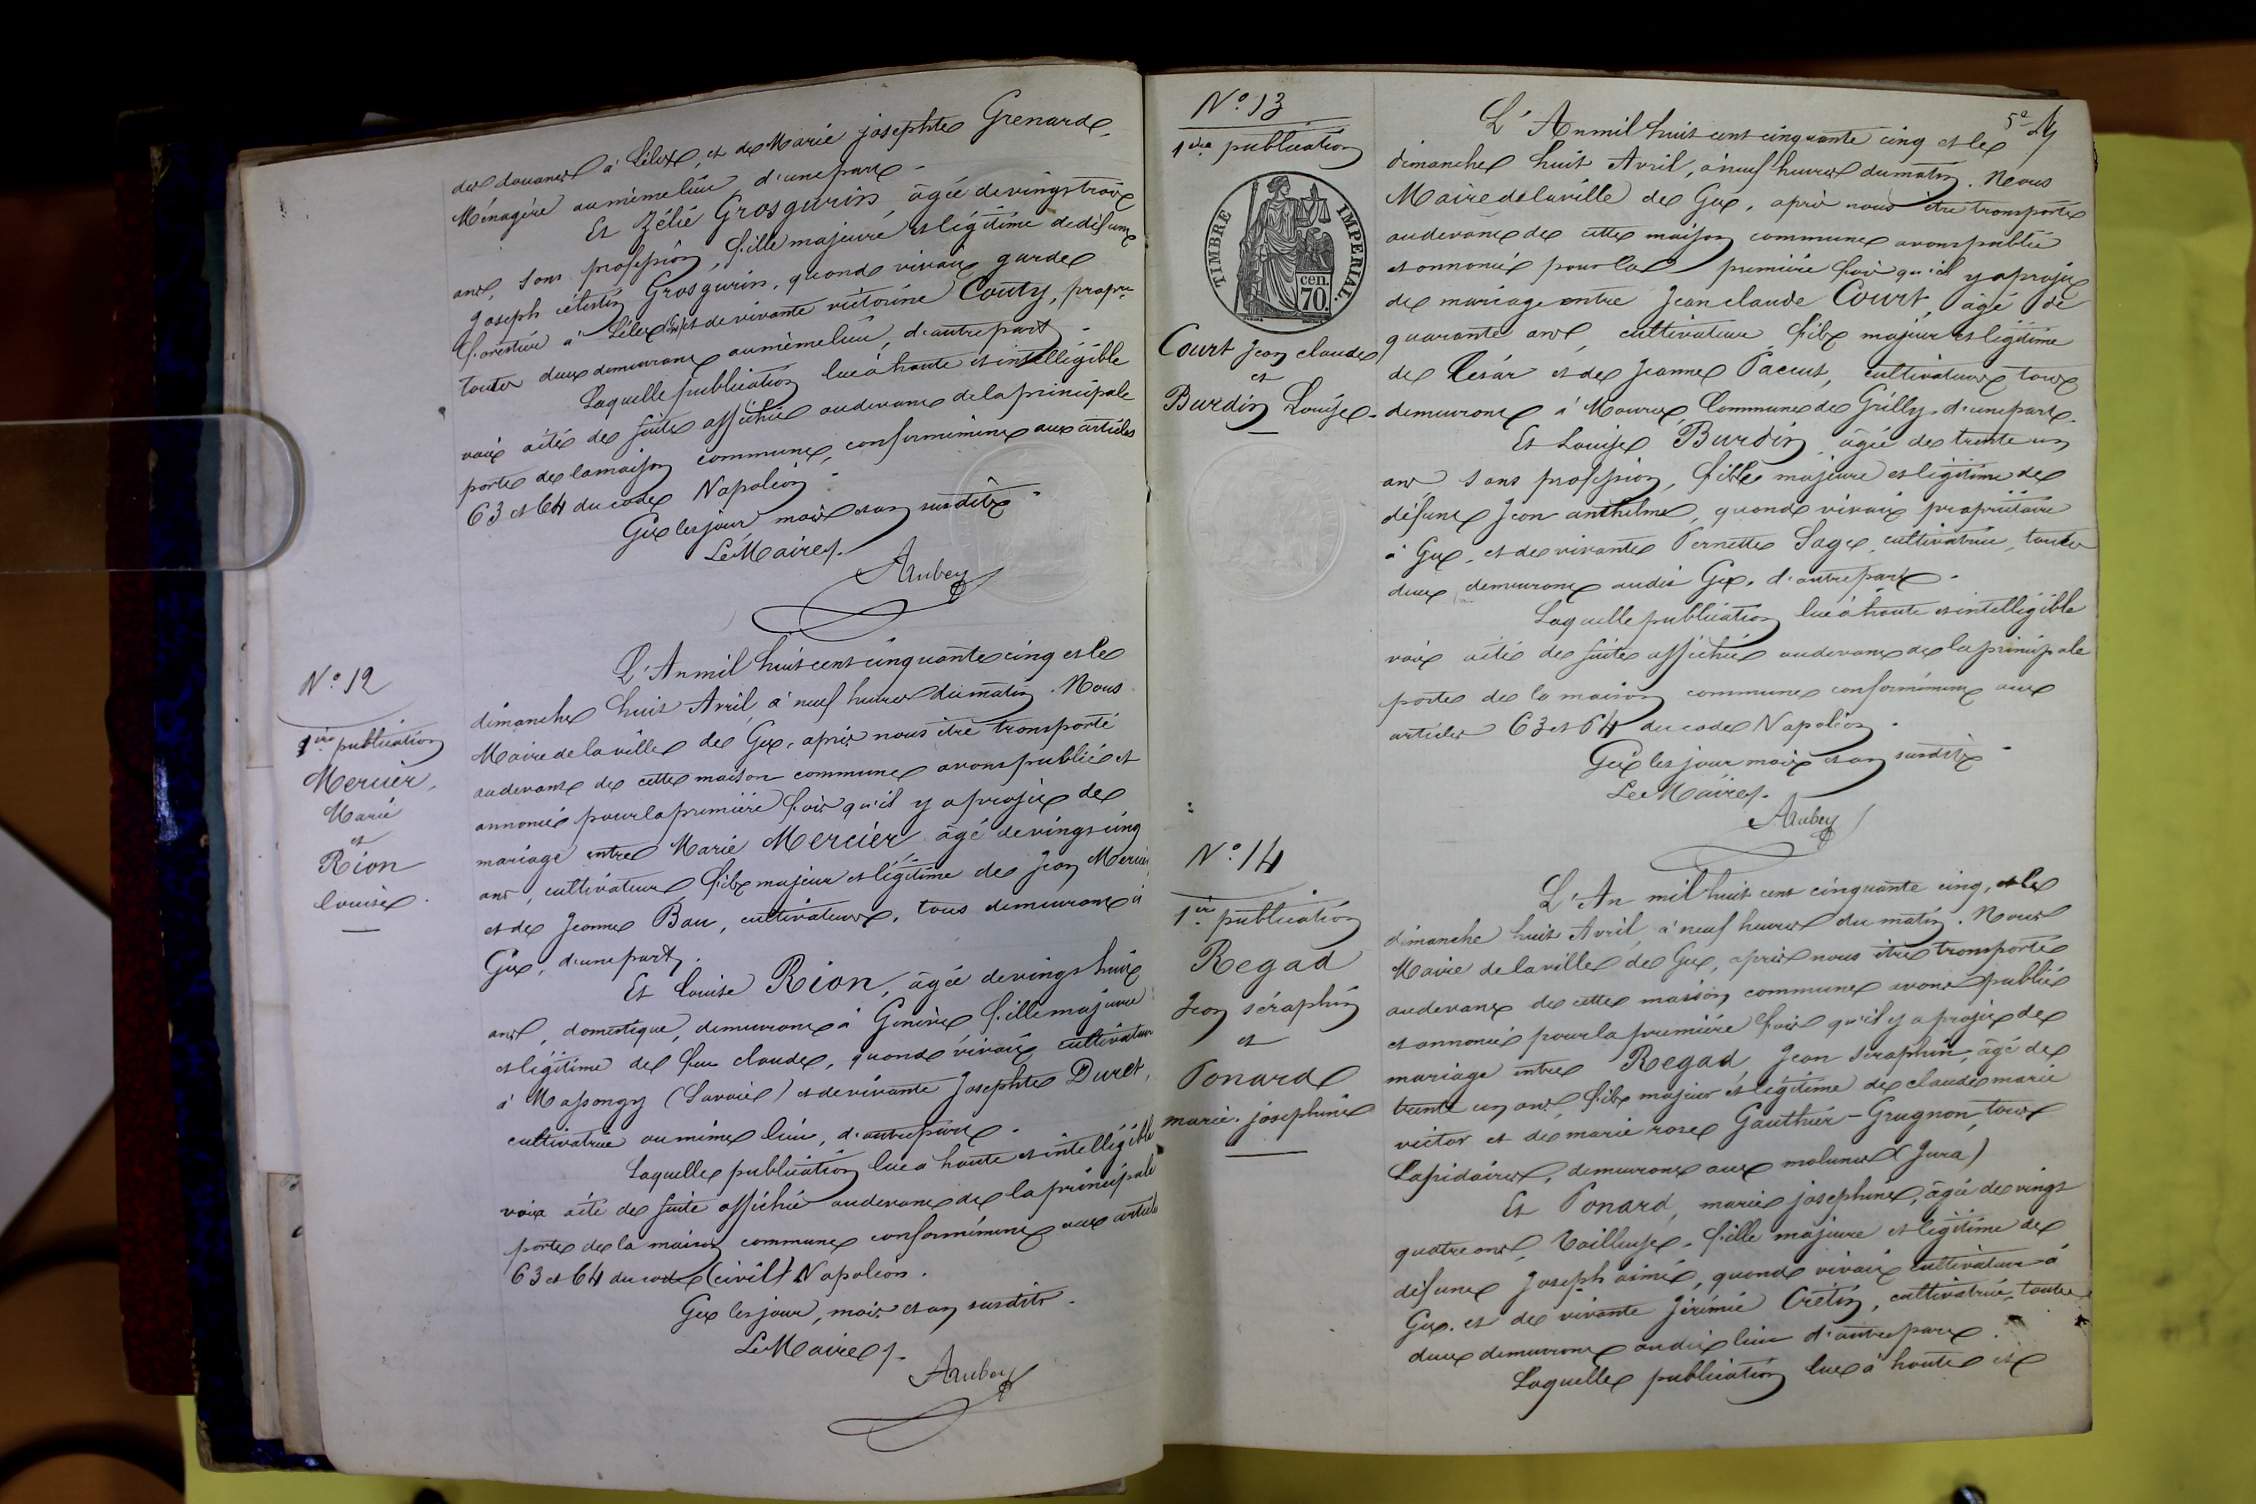 des douanes à Lélex, et de Marie josephte Grenard,
Ménagère au même lieu d'une part.
Et Zélié Grosgurin, âgée de vingt trois
ans, sans profession, fille majeure et légitime de défunt
Joseph célestin Grosgurin, quand vivait garde
forestier à Lélex et de vivante victorine Couty, propre
toutes deux demeurant au même lieu, d'autre part.
Laquelle publication lue à haute et intelligible
voix a été de suite affichée au devant de la principale
porte de la maison commune, conformément aux articles
63 et 64 du code Napoléon.
Gex les jour mois et an susdits.
Le Maire.
Aubey
N.º 12
1.ère publication
Mercier,
Marié
et
Rion
louise.
L'An mil huit cent cinquante cinq et le
dimanche huit Avril, à neuf heures du matin. Nous
Maire de la ville de Gex, après nous être transporté
au devant de cette maison commune avons publié et
annoncé pour la première fois qu'il y a projet de
mariage entre Marié Mercier âgé de vingt cinq
ans, cultivateur fils majeur et légitime de Jean Mercier
et de Jeanne Bau, cultivateurs, tous demeurant à
Gex, d'une part.
Et louise Rion, âgée de vingt huit
ans, domestique, demeurant à Genève fille majeure
et légitime de feu claude, quand vivait cultivateur
à Massongy (Savoie) et de vivante Josephte Duret,
cultivatrice au même lieu, d'autre part.
Laquelle publication lue à haute et intelligible
voix a été de suite affichée au devant de la principale
porte de la maison commune conformément aux articles
63 et 64 du code (civil) Napoléon.
Gex les jour, mois et an susdits.
Le Maire.
Aubey
N.º 13
1ère publication
TIMBRE IMPERIAL.
cen.
70.
Court Jean claude
et
Burdin Louise.
L'An mil huit cent cinquante cinq et le
dimanche huit Avril, à neuf heures du matin. Nous
Maire de la ville de Gex, après nous être transporté
au devant de cette maison commune avons publié
et annoncé pour la première fois qu'il y a projet
de mariage entre Jean claude Court, âgé de
quarante ans, cultivateur fils majeur et légitime
de César et de Jeanne Paccut, cultivateurs tous
demeurant à Mourex, Commune de Grilly, d'une part.
Et Louise Burdin âgée de trente un
ans sans profession, fille majeure et légitime de
défunt Jean anthelme, quand vivait propriétaire
à Gex, et de vivante Pernette Sage, cultivatrice, toutes
deux demeurant audit Gex, d'autre part.
Laquelle publication lue à haute et intelligible
voix a été de suite affichée au devant de la principale
porte de la maison commune conformément aux
articles 63 et 64 du code Napoléon.
Gex les jour mois et an susdits.
Le Maire.
Aubey
N.º 14
1.ère publication
Regad
Jean séraphin
et
Ponard
marie. josephine
L'An mil huit cent cinquante cinq, et le
dimanche huit Avril, à neuf heures du matin. Nous
Maire de la ville de Gex, après nous être transporté
au devant de cette maison commune avons publié
et annoncé pour la première fois qu'il y a projet de
mariage entre Regad, Jean séraphin, âgé de
trente un ans, fils majeur et légitime de claude marie
victor et de marie rose Gauthier-Grugnon, tous
Lapidaires, demeurant aux molunes (Jura)
Et Ponard, marie josephine, âgée de vingt
quatre ans, Tailleuse, fille majeure et légitime de
défunt Joseph aimé, quand vivait cultivateur à
Gex, et de vivante Jérémie Crétin, cultivatrice, toutes
deux demeurant audit lieu d'autre part.
Laquelle publication lue à haute et